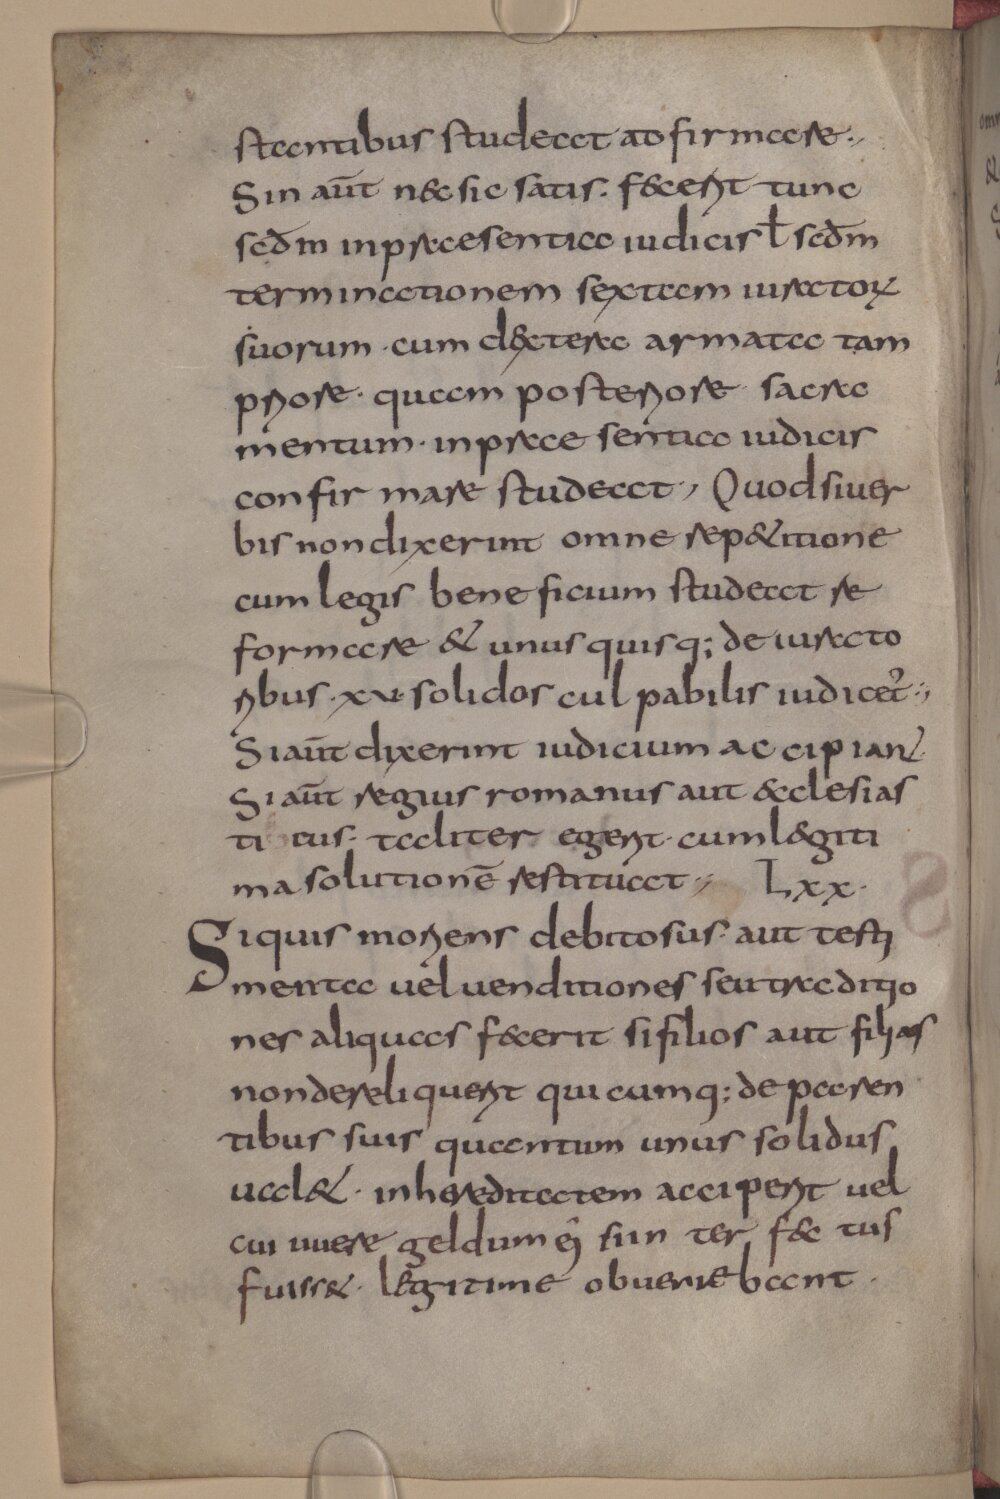 stantibus studeat adfirmare·,
Sin aut̄ n&sic satis. fęcerit tunc
scd̄m inpraesentia iudicis ł scd̄m
terminationem sextam iuratoꝝ
suorum · cum dextera armata tam
priore · quam posteriore sacra
mentum · inpraesentia iudicis
confirmare studeat·, Quodsiuer
bis nondixerint omne rep&itione
cum legis beneficium studeat re
formare & unusquisq; de iurato
ribus · xv · solidos culpabilis iudicet᷑·,
Siaut̄ dixerint iudicium accipian᷑
Si aut̄ regius romanus aut ęcclesias
ticus · taliter egerit · cumlęgiti
ma solutionē restituat·, Lxx·
Siquis moriens debitosus · aut testa
menta uel uenditiones seu traditio
nes aliquas fęcerit si filios aut filias
nondereliquerit quicumq; de paren
tibus suis quantum unus solidus
ual& · inhereditatem acciperit uel
cui uuere geldum ei᷑ si in ter fęc tus
fuiss& · legitime obueniebant ·